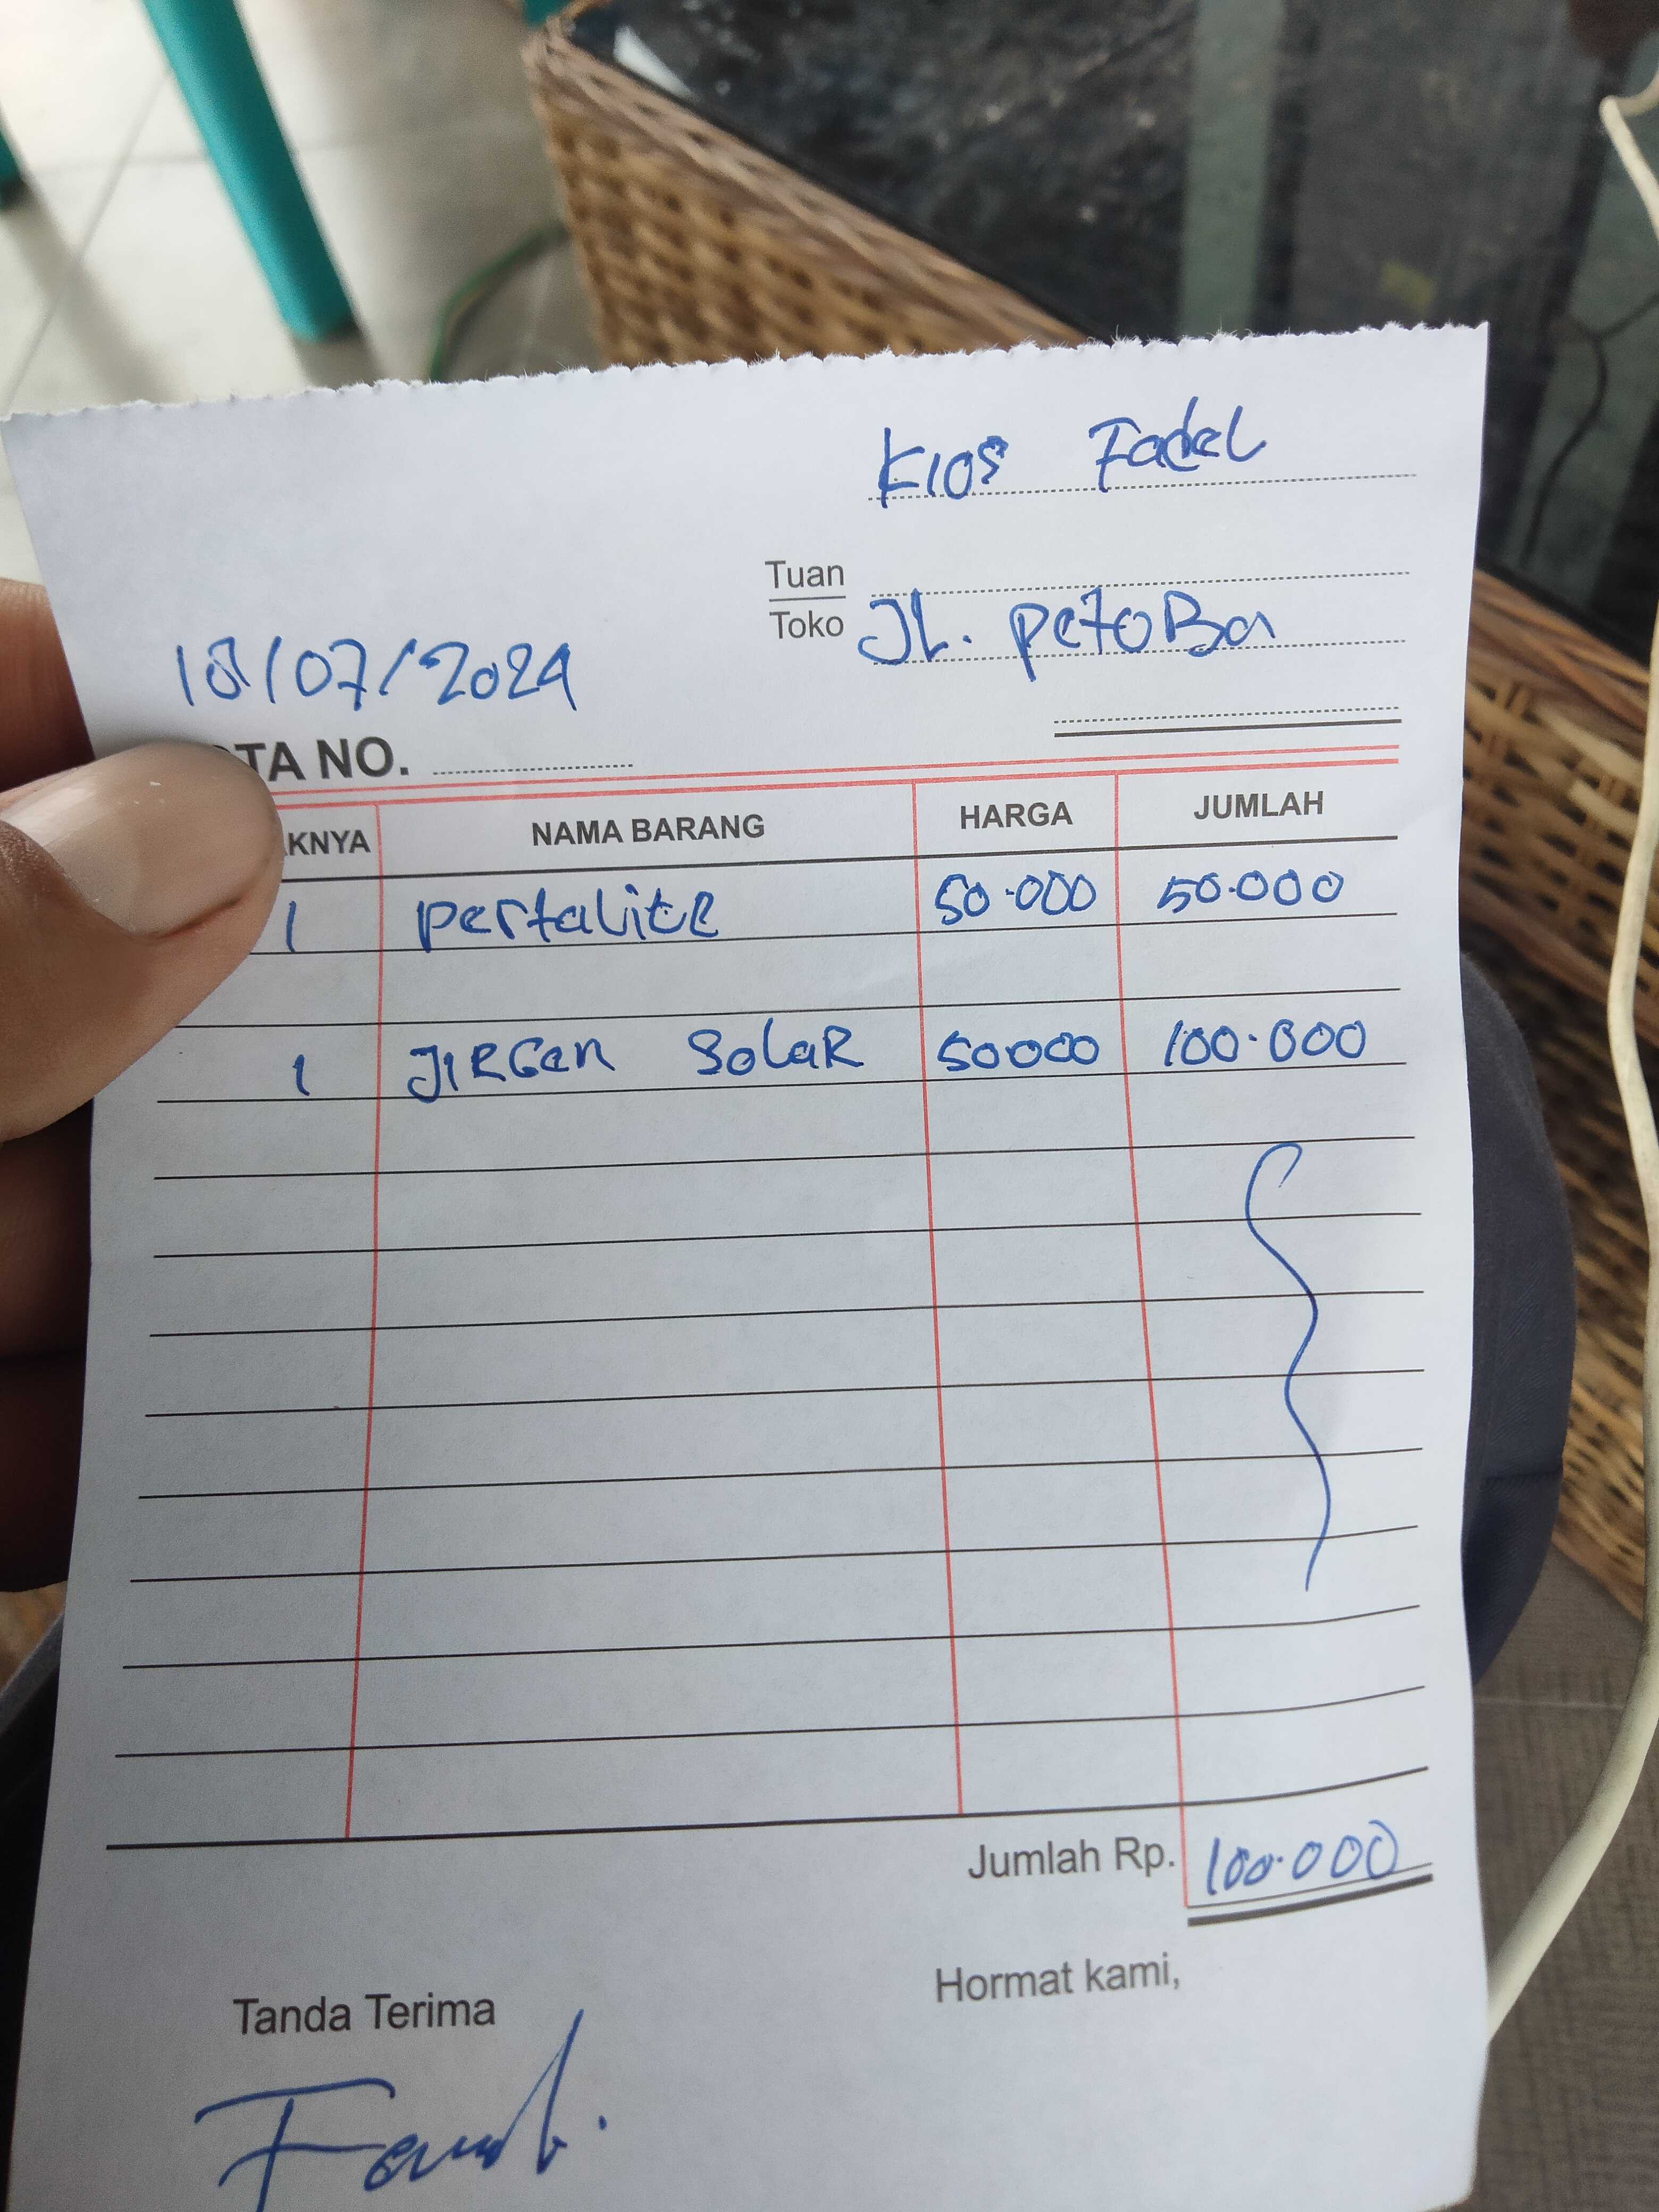 Kios Fadel
Tuan
Toko JL. petoBa
18/07/2024
TA NO.
KNYA NAMA BARANG HARGA JUMLAH
1 Pertalite 50.000 50.000
1 JIRGen SolaR 50000 100.000
Jumlah Rp. 100.000
Tanda Terima Hormat kami,